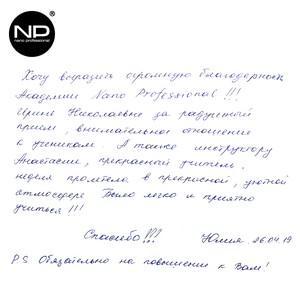 NP
nano professional
Хочу выразить огромную благодарность
Академии Nano Professional !!!
Ирине Николаевне за радушный
приём, внимательное отношение
к ученикам. А также инструктору
Анастасии, прекрасный учитель,
неделя пролетела в прекрасной, уютной
атмосфере Было легко и приятно
учиться !!!
Спасибо !!! Юлия. 26.04.19
P.S Обязательно на повышение к Вам!